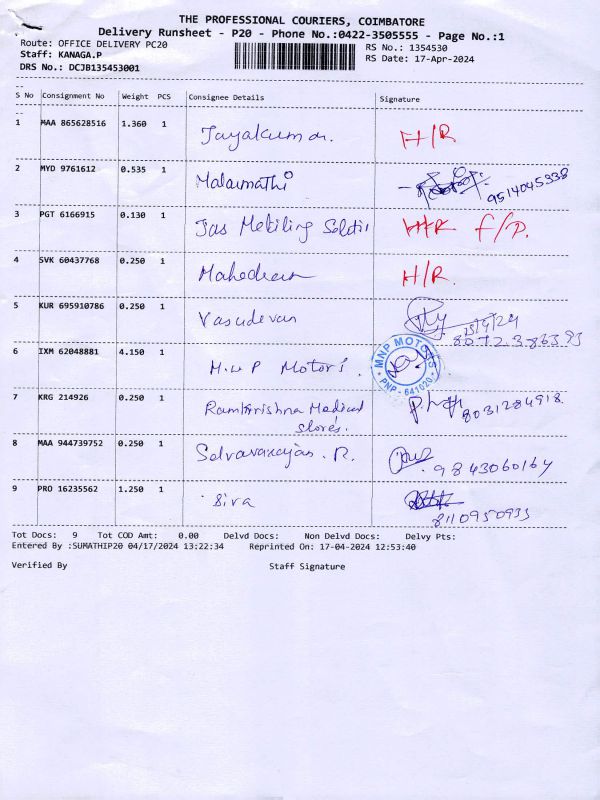 THE PROFESSIONAL COURIERS, COIMBATORE
Delivery Runsheet - P20 - Phone No.:0422-3505555 - Page No.:1
Route: OFFICE DELIVERY PC20
RS No.: 1354530
Staff: KANAGA.P
RS Date: 17-Apr-2024
DRS No.: DCJB135453001
S No Consignment No Weight PCS Consignee Details Signature
1 MAA 865628516 1.360 1 Jayakumar. H/R
2 MYD 9761612 0.535 1 Malarmathi 9514045338
3 PGT 6166915 0.130 1 Jas H/R F/P.
4 SVK 60437768 0.250 1 H/R.
5 KUR 695910786 0.250 1 Vasudevan
6 IXM 62048881 4.150 1 M.N P Motors. MNP MOTORS PNP - 641020
7 KRG 214926 0.250 1 Ramkrishna Medical 8031284918.
stores.
8 MAA 944739752 0.250 1 Selvavanayan. R. 9843060164
9 PRO 16235562 1.250 1 Siva
8110950933
Tot Docs: 9 Tot COD Amt: 0.00 Delvd Docs: Non Delvd Docs: Delvy Pts:
Entered By :SUMATHIP20 04/17/2024 13:22:34 Reprinted On: 17-04-2024 12:53:40
Verified By Staff Signature